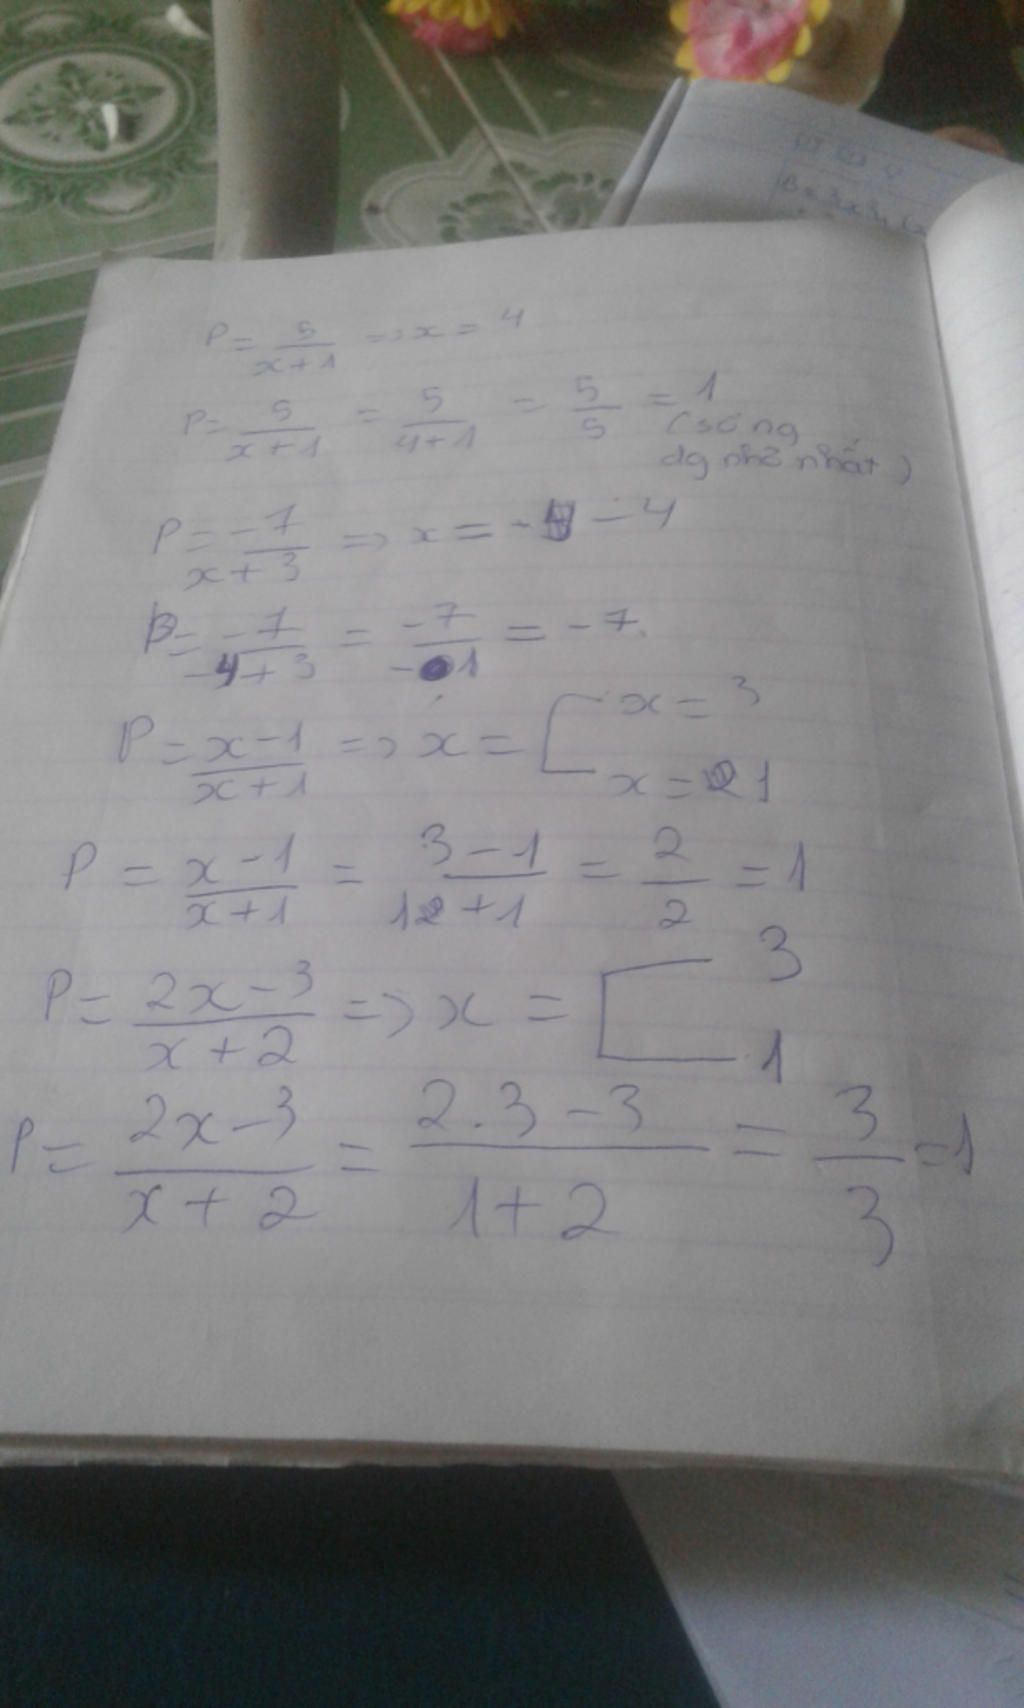 P = 5/(x+1) => x = 4
P = 5/(x+1) = 5/(4+1) = 5/5 = 1
(số ng
dg nhỏ nhất)
P = -7/(x+3) => x = - 4
B = -7/(-4+3) = -7/-1 = -7.
P = (x-1)/(x+1) => x = [ x = 3
x = 1
P = (x-1)/(x+1) = (3-1)/(1+1) = 2/2 = 1
P = (2x-3)/(x+2) => x = [ 3
1
P = (2x-3)/(x+2) = (2.3-3)/(1+2) = 3/3 = 1